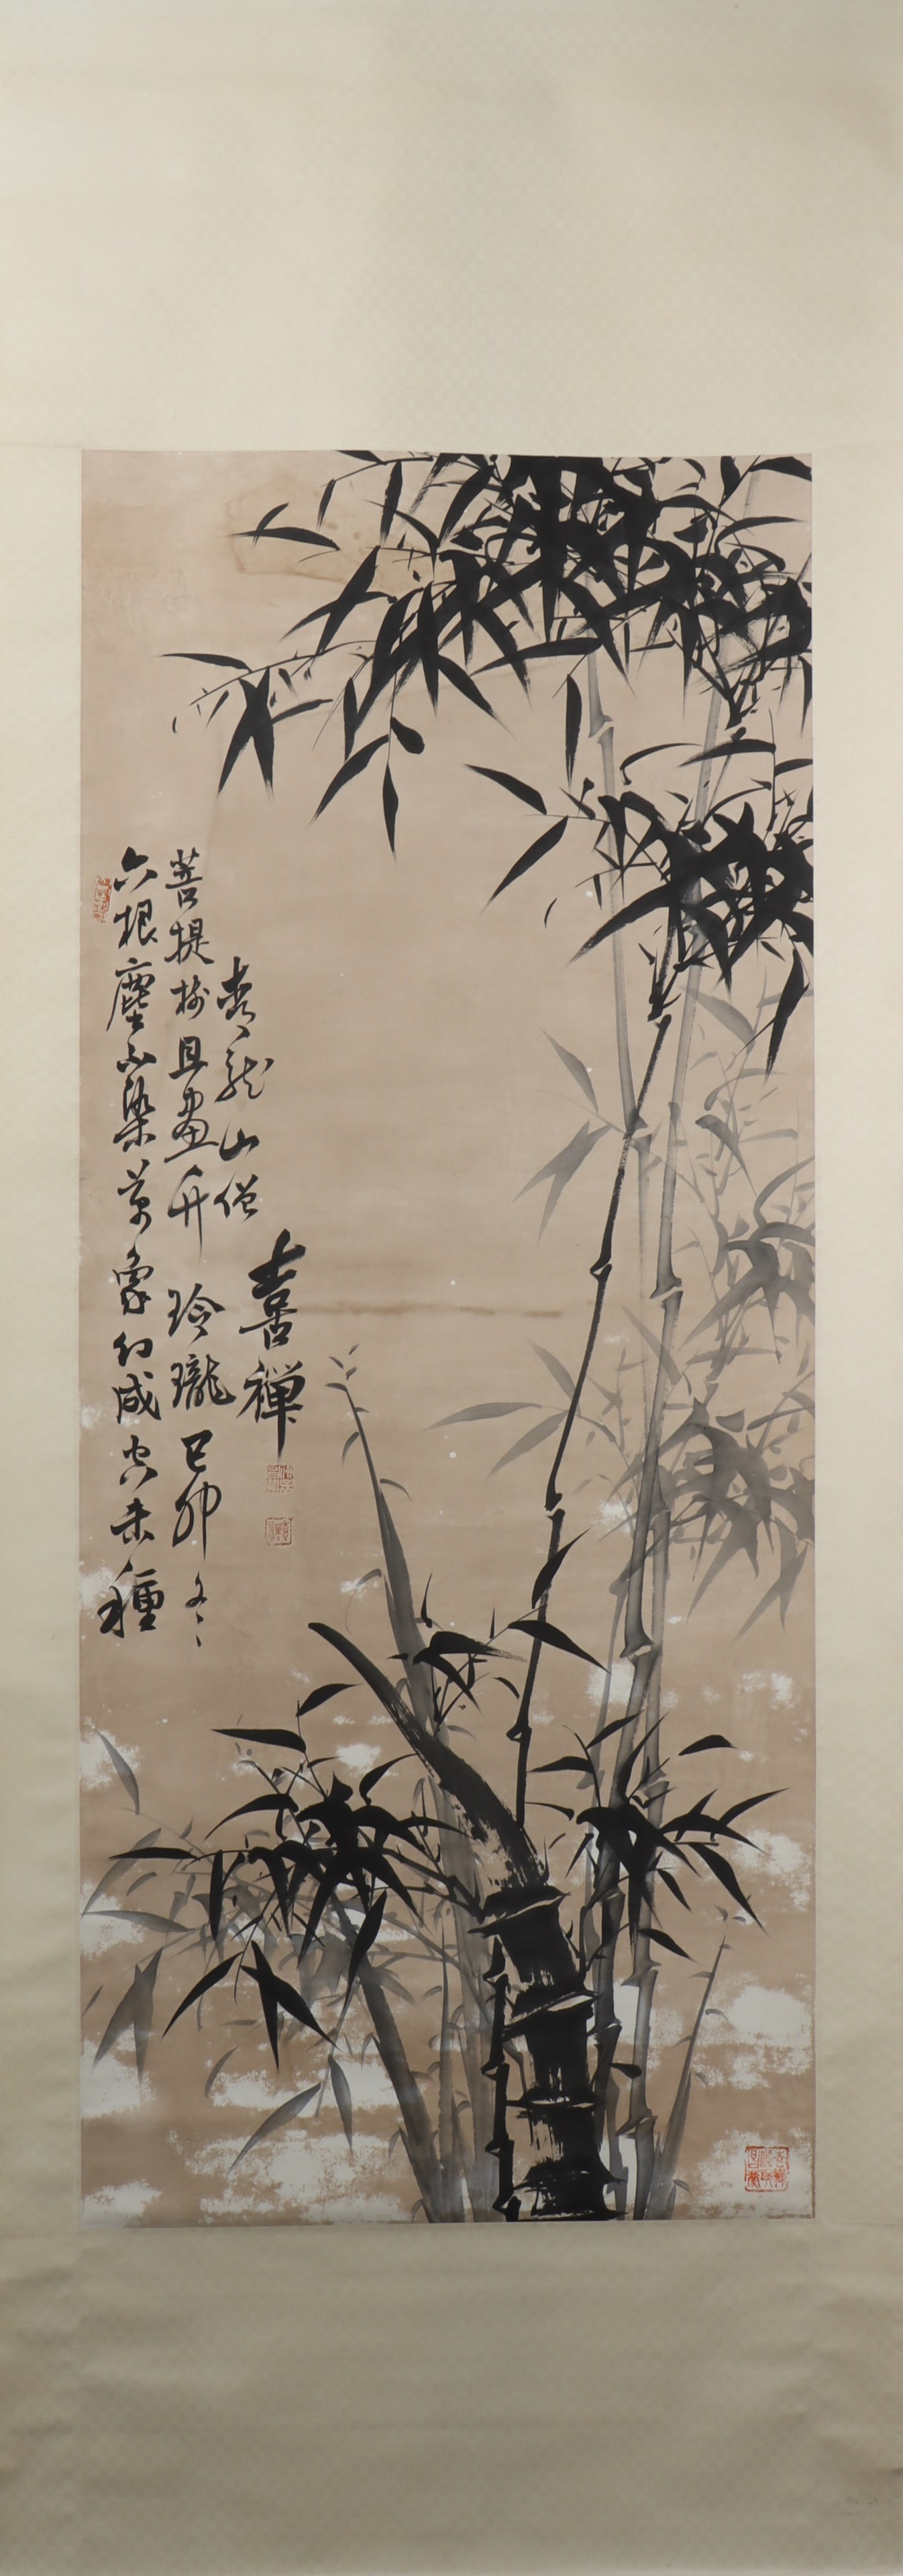 六根塵不染萬象幻成空未種
菩提樹且畫竹玲瓏己卯冬
龍山僧
喜禪